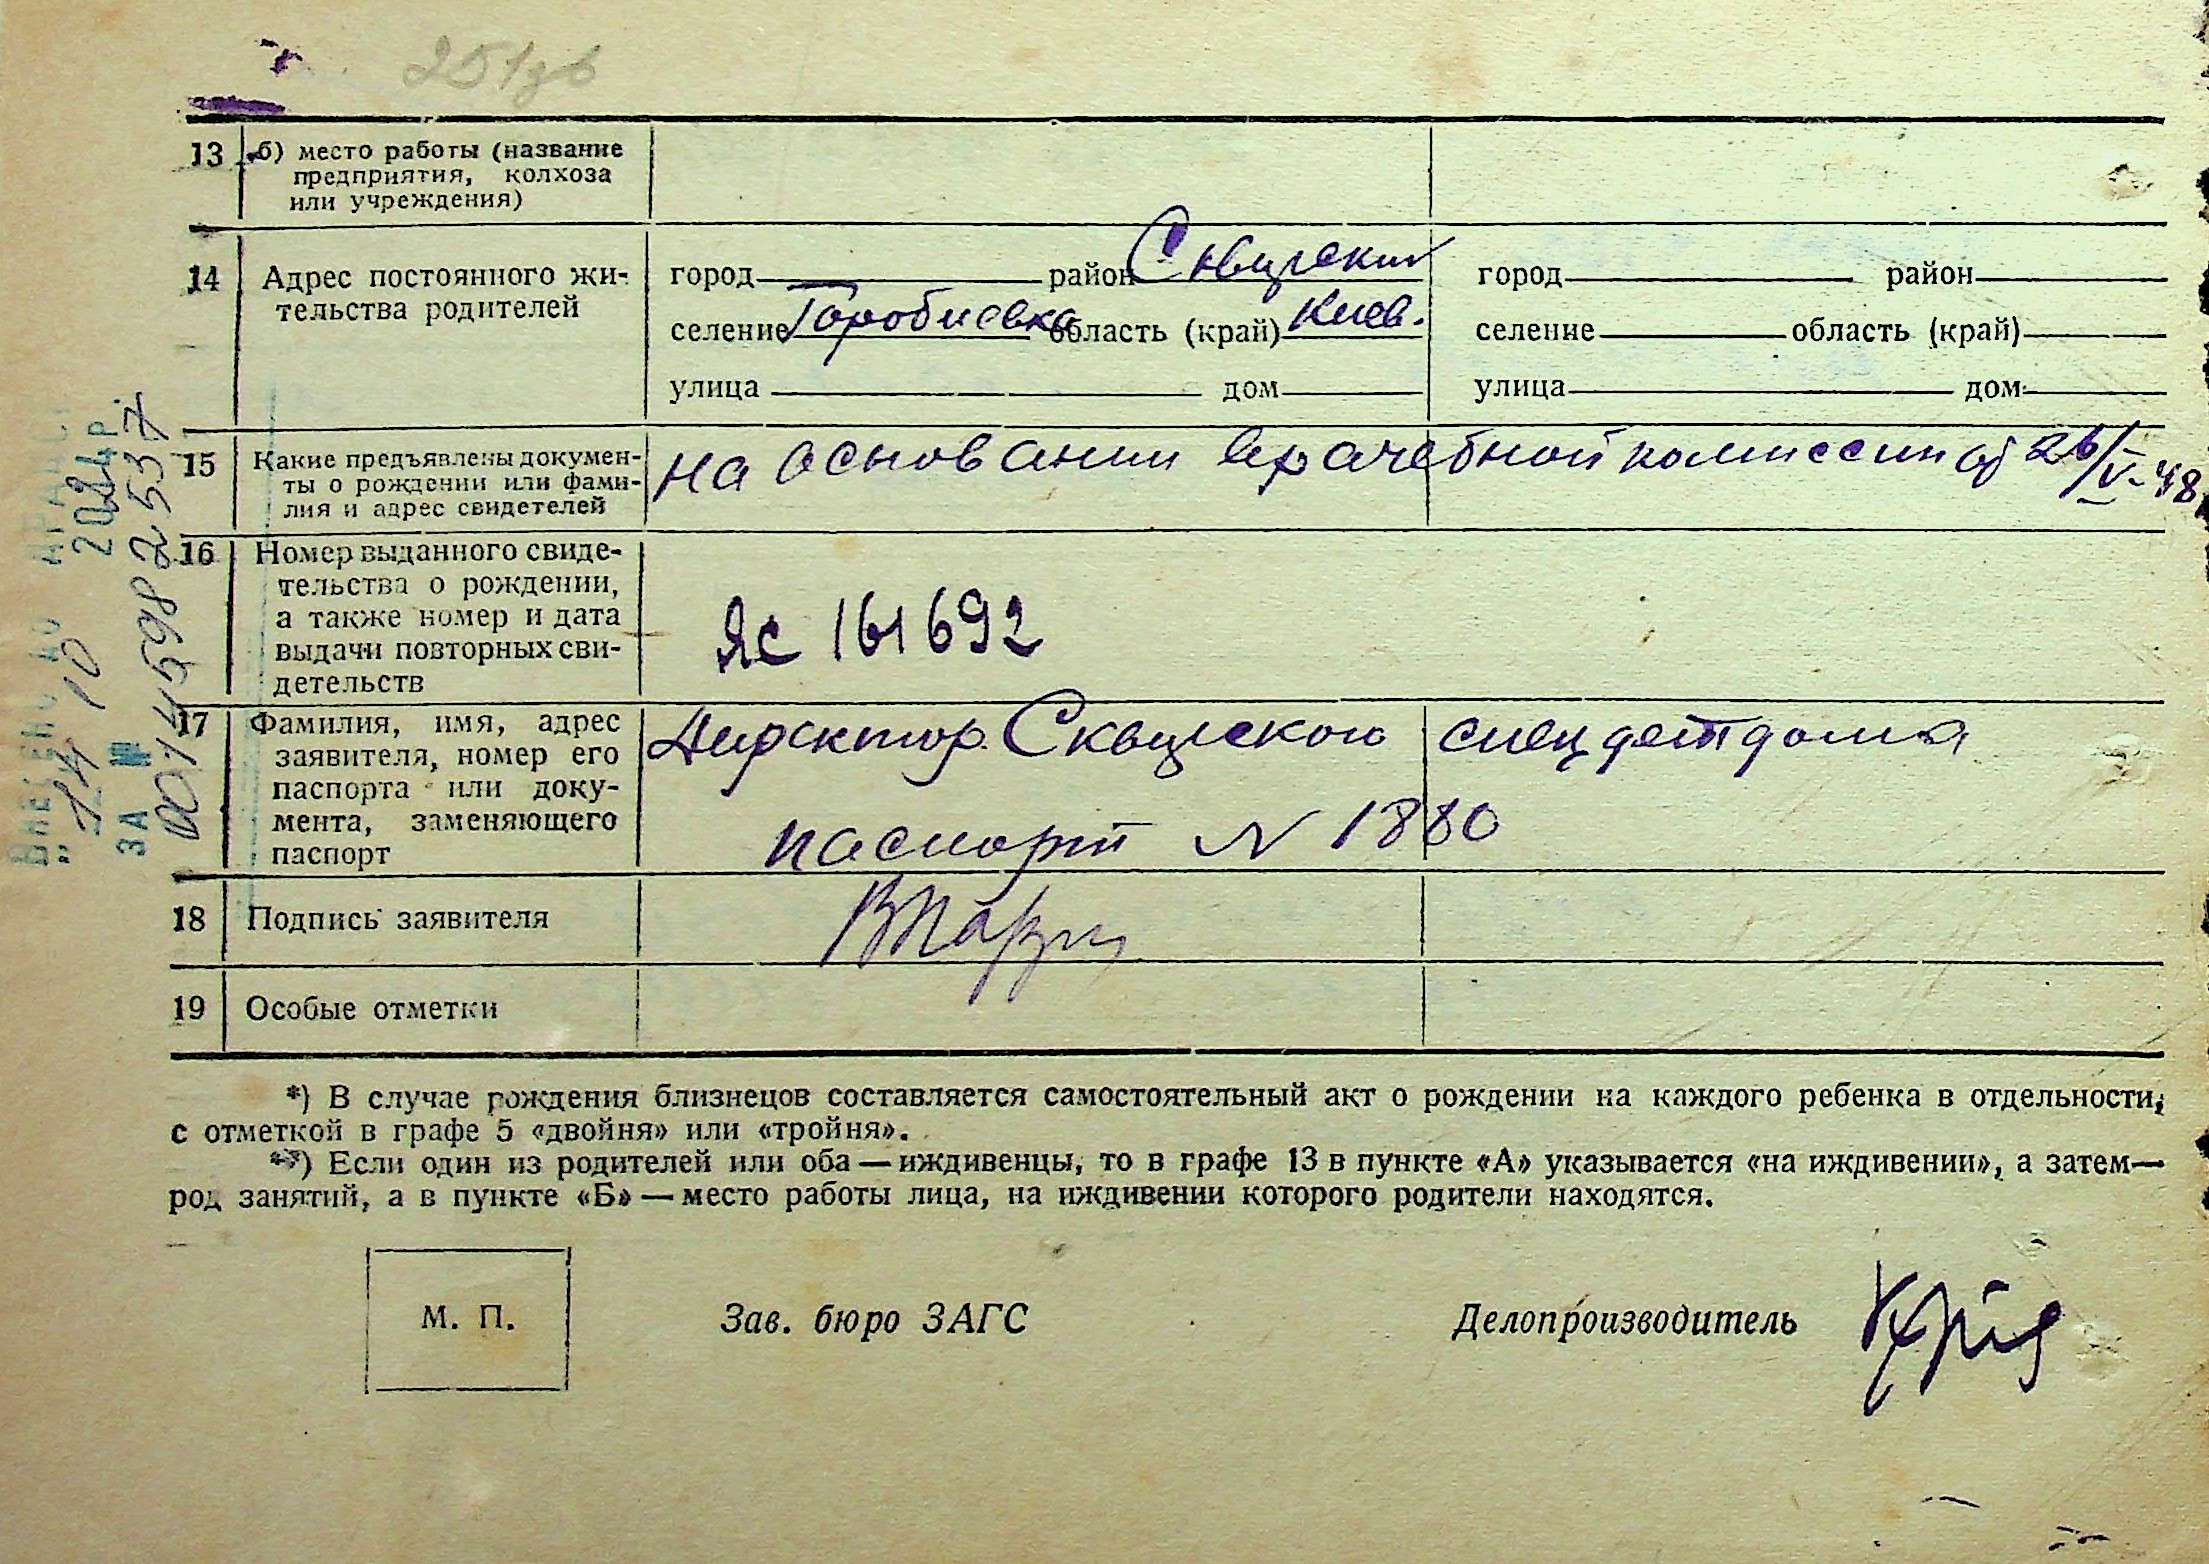 251зв
13 б) место работы (название
предприятия, колхоза
или учреждения)
14 Адрес постоянного жи-
тельства родителей
город район Сквирский
селение Горобиевка область (край) Киев.
улица дом
город район
селение область (край)
улица дом
15 Какие предъявлены докумен-
ты о рождении или фами-
лия и адрес свидетелей
на основании врачебной комиссии от 26/V-48
16 Номер выданного свиде-
тельства о рождении,
а также номер и дата
выдачи повторных сви-
детельств
ЯС 161692
17 Фамилия, имя, адрес
заявителя, номер его
паспорта или доку-
мента, заменяющего
паспорт
Директор Сквирского спец детдома
паспорт N 1880
18 Подпись заявителя
19 Особые отметки
*) В случае рождения близнецов составляется самостоятельный акт о рождении на каждого ребенка в отдельности,
с отметкой в графе 5 «двойня» или «тройня».
**) Если один из родителей или оба — иждивенцы, то в графе 13 в пункте «А» указывается «на иждивении», а затем —
род занятий, а в пункте «Б» — место работы лица, на иждивении которого родители находятся.
М. П.
Зав. бюро ЗАГС
Делопроизводитель
ВНЕСЕНО ДО ДРАЦС
" 14 10 2024 р.
ЗА №
00145982537